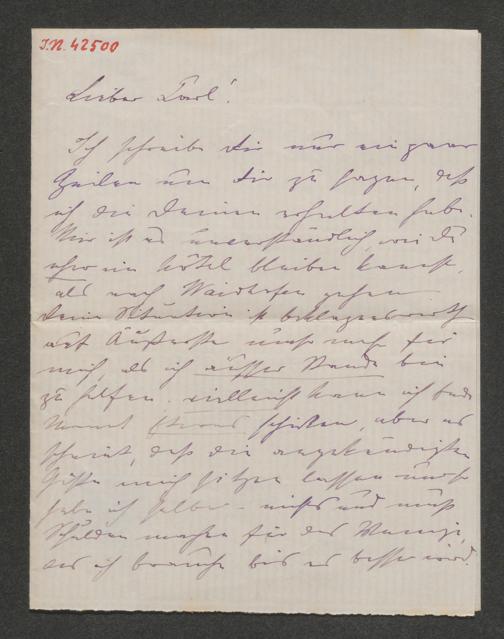 I.N. 42500
Lieber Carl!
Ich schreibe dir nur ein paar
Zeilen um dir zu sagen, daß
ich die Deinen erhalten habe.
Mir ist es unverständlich, wie du
eher im Hôtel bleiben kannst,
als nach Waidhofen gehen
Deine Situation ist beklagenswerth
auf Äußerste und mehr für
mich, als ich außer Stande bin
zu helfen. vielleicht kann ich Ende
Monat etwas schicken, aber es
scheint, daß die angekündigten
Gäste mich sitzen lassen und
habe ich selber nichts und muß
Schulden machen für das Wenige,
das ich brauche bis es besser wird.